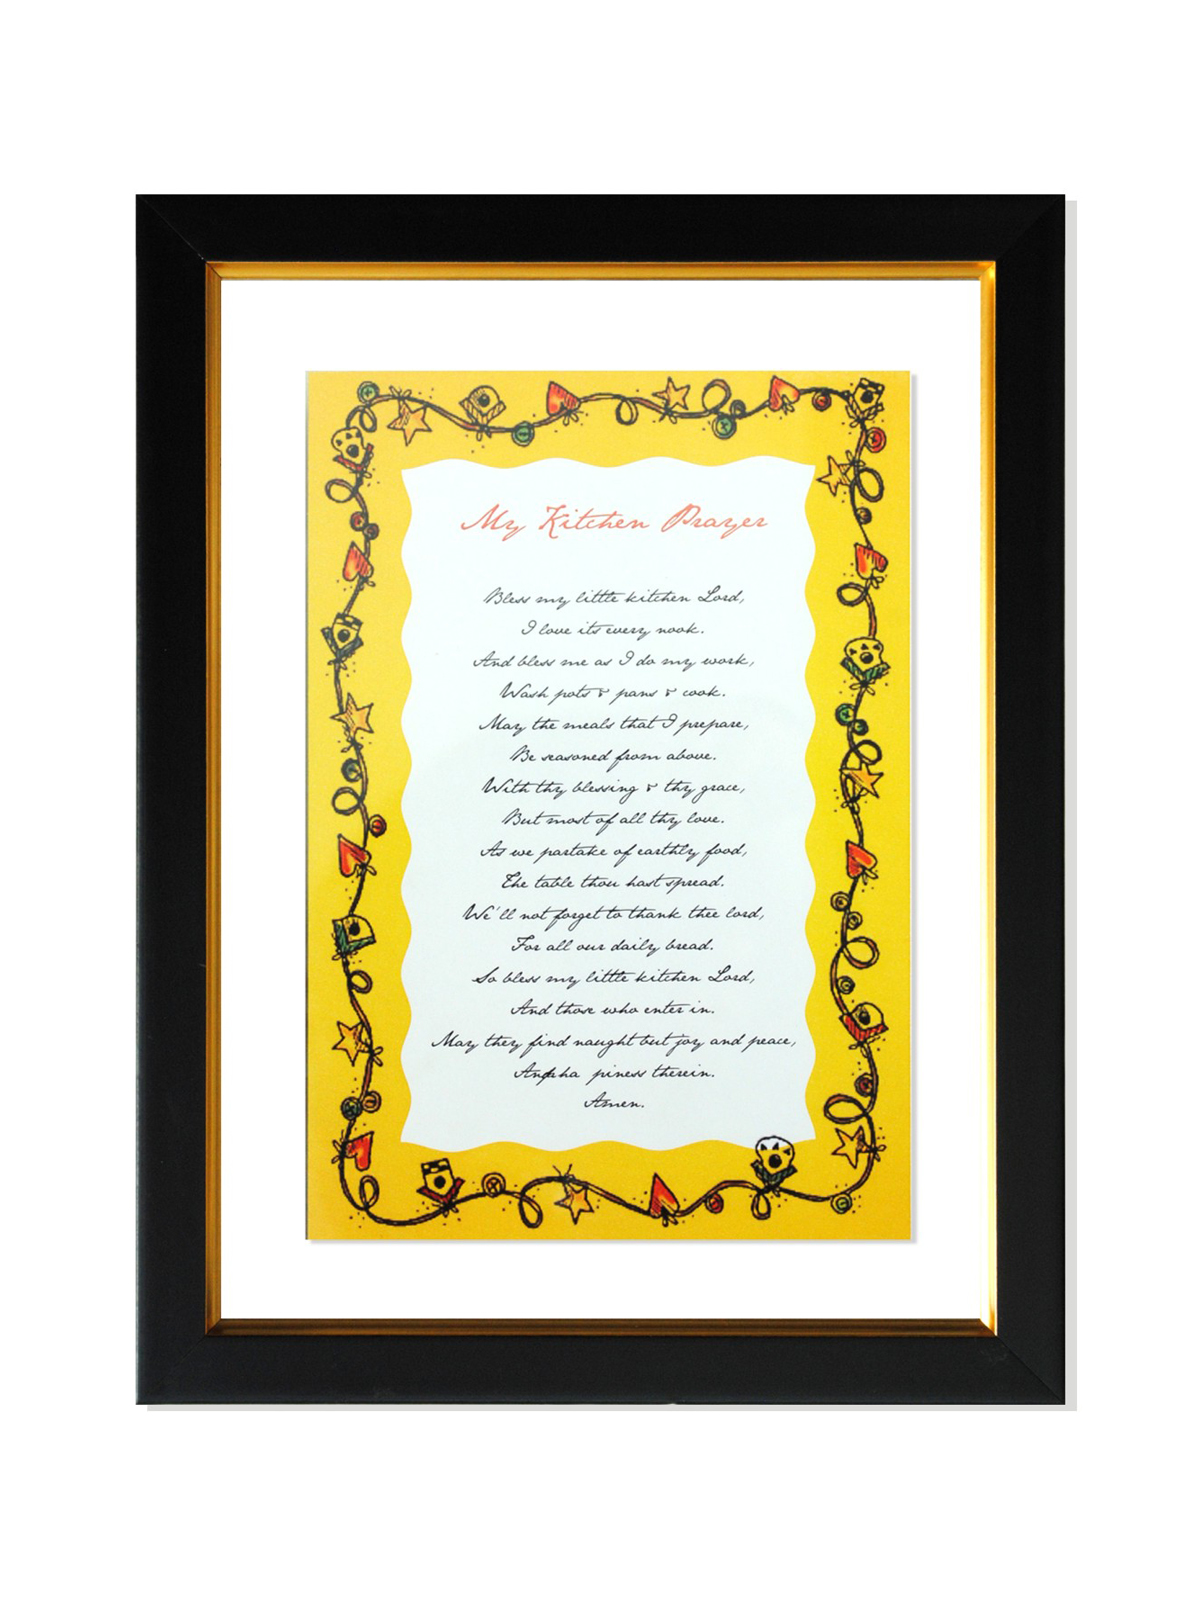 My Kitchen Prayer
Bless my little kitchen Lord,
I love its every nook.
And bless me as I do my work,
Wash pots & pans & cook.
May the meals that I prepare,
Be seasoned from above.
With thy blessing & thy grace,
But most of all thy love.
As we partake of earthly food,
The table thou hast spread.
We'll not forget to thank thee lord,
For all our daily bread.
So bless my little kitchen Lord,
And those who enter in.
May they find naught but joy and peace,
And ha piness therein.
Amen.